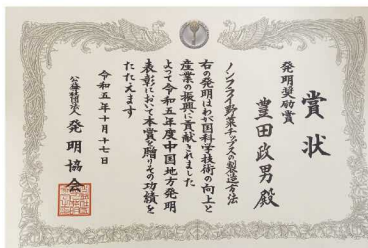 賞状
発明奨励賞
豊田政男殿
ノンフライ野菜チップスの製造方法
右の発明はわが国科学技術の向上と
産業の振興に貢献されました
よって令和五年度中国地方発明
表彰において本賞を贈りその功績を
たたえます
令和五年十月十七日
公益社団法人 発明協会